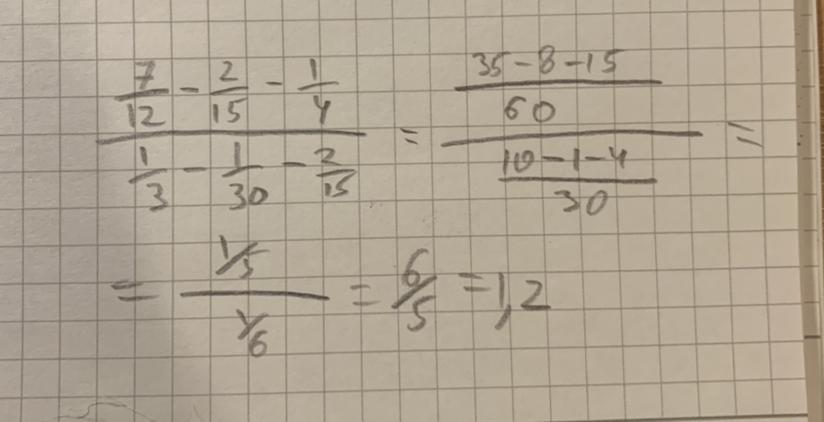 7/12 - 2/15 - 1/4 / 1/3 - 1/30 - 2/15 = 35-8-15/60 / 10-1-4/30 =
= 1/5 / 1/6 = 6/5 = 1,2